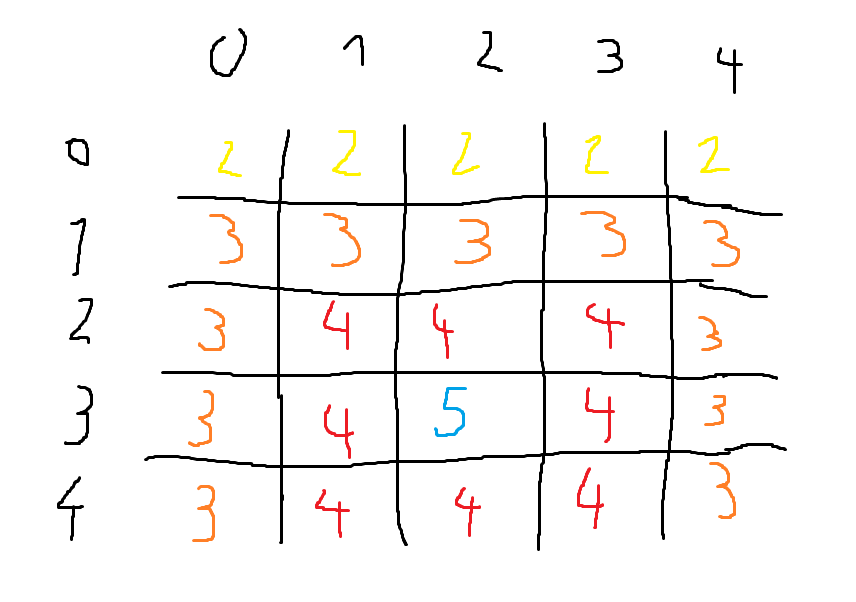 0 1 2 3 4
0 2 2 2 2 2
1 3 3 3 3 3
2 3 4 4 4 3
3 3 4 5 4 3
4 3 4 4 4 3